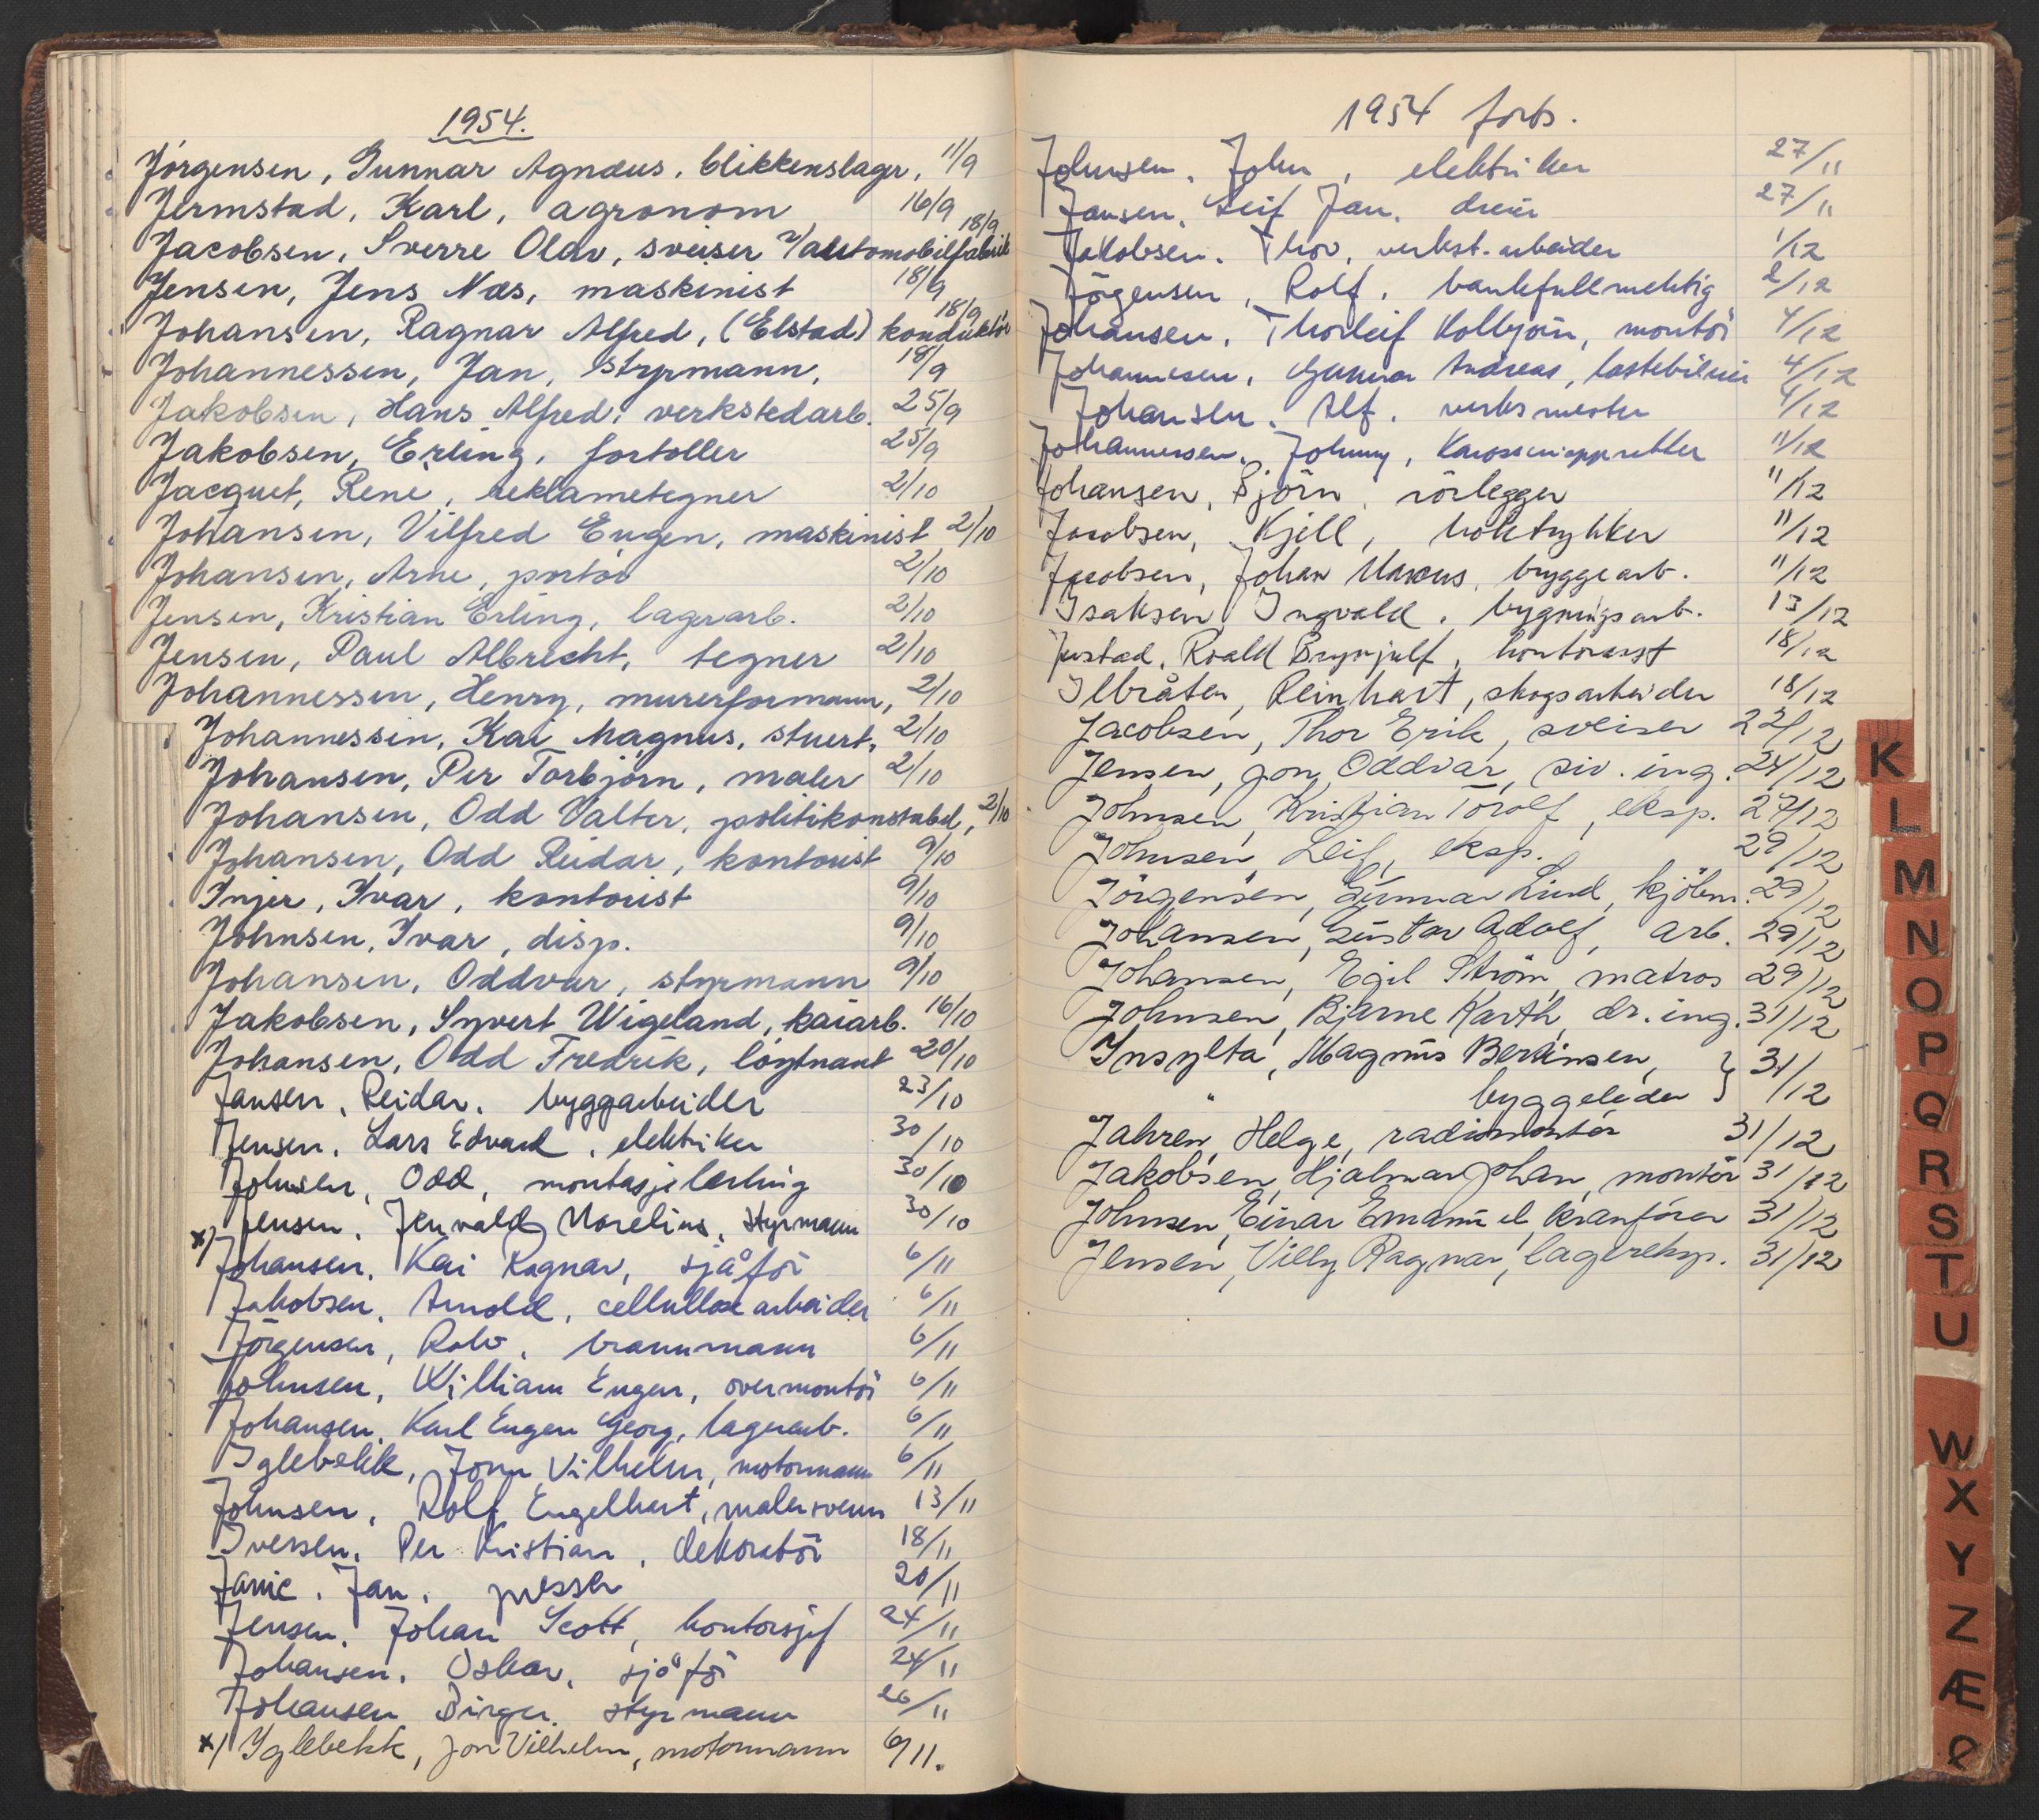 1954.
Jörgensen, Gunnar Agnæus, blikkenslager, 11/9
Jermstad, Karl, agronom 16/9
Jacobsen, Sverre Olav, sveiser v/automobilfabrik 18/9
Jensen, Jens Næs, maskinist 18/9
Johansen, Ragnar Alfred, (Elstad) konduktör 18/9
Johannessen, Jan, styrmann, 18/9
Jakobsen, Hans Alfred, verkstedarb. 25/9
Jakobsen, Erling, fortoller 25/9
Jacquet, René, reklametegner 2/10
Johansen, Vilfred Eugen, maskinist 2/10
Johansen, Arne, portör 2/10
Jensen, Kristian Erling, lagerarb. 2/10
Jensen, Paul Albrecht, tegner 2/10
Johannessen, Henry, murerformann, 2/10
Johannessen, Kai Magnus, stuert, 2/10
Johansen, Per Torbjörn, maler 2/10
Johansen, Odd Valter, politikonstabel, 2/10
Johansen, Odd Reidar, kontorist 9/10
Injer, Ivar, kontorist 9/10
Johnsen, Ivar, disp. 9/10
Johansen, Oddvar, styrmann 9/10
Jakobsen, Syvert Wigeland, kaiarb. 16/10
Johansen, Odd Fredrik, löytnant 20/10
Jansen, Reidar, byggarbeider 23/10
Jensen, Lars Edvard, elektriker 30/10
Johnsen, Odd, montasjelærling 30/10
Jensen, Jenvald Morelius, styrmann 30/10
x) Johansen, Kai Ragnar, sjåför 6/11
Jakobsen, Arnold, cellulosearbeider 6/11
Jörgensen, Rolv, brannmann 6/11
Johnsen, William Eugen, overmontör 6/11
Johansen, Karl Eugen Georg, lagerarb. 6/11
Iglebekk, Jonn Vilhelm, motormann 6/11
Johnsen, Rolf Engelhart, malersvenn 13/11
Iversen, Per Kristian, dekoratör 18/11
Janic, Jan, presser 20/11
Jensen, Johan Scott, kontorsjef 24/11
Johansen, Oskar, sjåför 24/11
Johansen Birger, styrmann 26/11
x) Iglebekk, Jon Vilhelm, motormann 6/11.
1954 forts.
Johnsen, John, elektriker 27/11
Jansen, Leif Jan, dreier 27/11
Jakobsen, Thor, verkst.arbeider 1/12
Jörgensen, Rolf, bankfullmektig 2/12
Johansen, Thorleif Kolbjörn, montör 4/12
Johannesen, Gunnar Andreas, lastebileier 4/12
Johansen, Alf, verksmester 4/12
Johannessen, Johnny, Karosserioppretter 11/12
Johansen, Björn, rörlegger 11/12
Jacobsen, Kjell, boktrykker 11/12
Jacobsen, Johan Marcus, bryggearb. 11/12
Isaksen, Ingvald, bygningsarb. 13/12
Justad, Roald Brynjulf, kontorasst 18/12
Ilbråten, Reinhart, skogsarbeider 18/12
Jacobsen, Thor Erik, sveiser 22/12
Jensen, Jon Oddvar, siv.ing. 24/12
Johnsen, Kristian Torolf, eksp. 27/12
Johnsen, Leif, eksp. 29/12
Jörgensen, Gunnar Lind, kjöbm. 29/12
Johansen, Gustav Adolf, arb. 29/12
Johansen, Egil Ström, matros 29/12
Johnsen, Bjarne Karth, dr.ing. 31/12
Insylta, Magnus Berntinsen,
" byggeleder } 31/12
Jahren, Helge, radiomontör 31/12
Jakobsen, Hjalmar Johan, montör 31/12
Johnsen, Einar Emanuel, kranförer 31/12
Jensen, Villy Ragnar, lagereksp. 31/12
K
L
M
N
O
P
Q
R
S
T
U
W
X
Y
Z
Æ